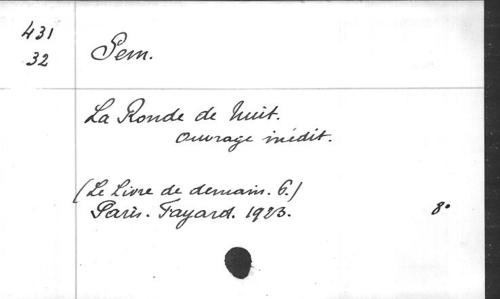 431
32
Sem.
La Ronde de Nuit.
Ouvrage inédit.
(Le Livre de demain. 6.)
Paris. Fayard. 1923.
8°